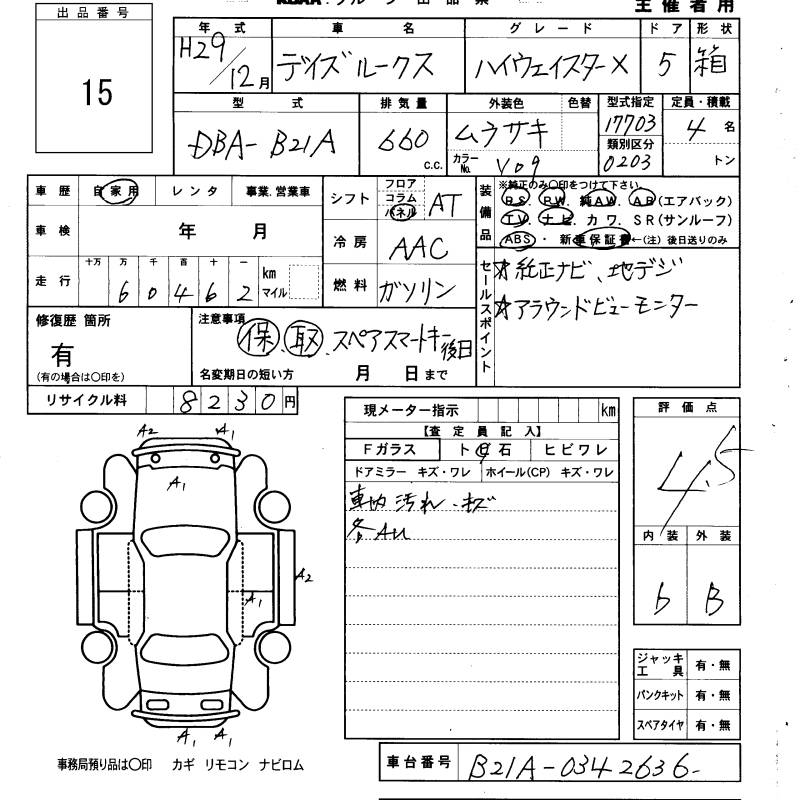 主催者用
出品番号
15
年式 車名 グレード ドア 形状
H29/12月 デイズルークス ハイウェイスターX 5 箱
型式 排気量 外装色 色替 型式指定 定員・積載
DBA-B21A 660 c.c. ムラサキ カラーNo. V09 17703 4名
類別区分
0203 トン
車歴 自家用 レンタ 事業.営業車
シフト フロア コラム パネル AT
装備品 ※純正のみ〇印をつけて下さい
P.S. P.W. 純A.W. A.B(エアバック)
T.V. ナビ カワ. S R(サンルーフ)
ABS ・ 新車保証書←(注)後日送りのみ
車検 年 月
冷房 AAC
走行 十万 万 千 百 十 一 km マイル
6 0 4 6 2
燃料 ガソリン
セールスポイント
☆純正ナビ、地デジ
☆アラウンドビューモニター
修復歴 箇所
有
(有の場合は〇印を)
注意事項
保 取 スペアスマートキー後日
名変期日の短い方 月 日まで
リサイクル料 8230円
現メーター指示 km
【査定員記入】
Fガラス ト 石 ヒビワレ
ドアミラー キズ・ワレ ホイール(CP) キズ・ワレ
車内汚れ・キズ
各AU
評価点
4.5
内装 外装
b B
A2 A1
A1
A2
A1
A1 A1
ジャッキ工具 有・無
パンクキット 有・無
スペアタイヤ 有・無
事務局預り品は〇印 カギ リモコン ナビロム
車台番号 B21A-0342636-